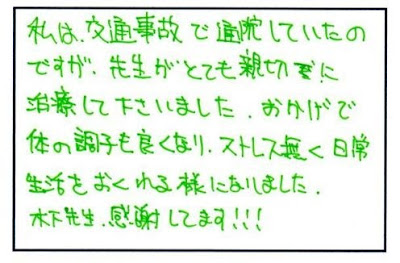 私は、交通事故で通院していたの
ですが、先生がとても親切に
治療して下さいました。おかげで
体の調子も良くなり、ストレス無く日常
生活をおくれる様になりました。
木下先生、感謝してます!!!